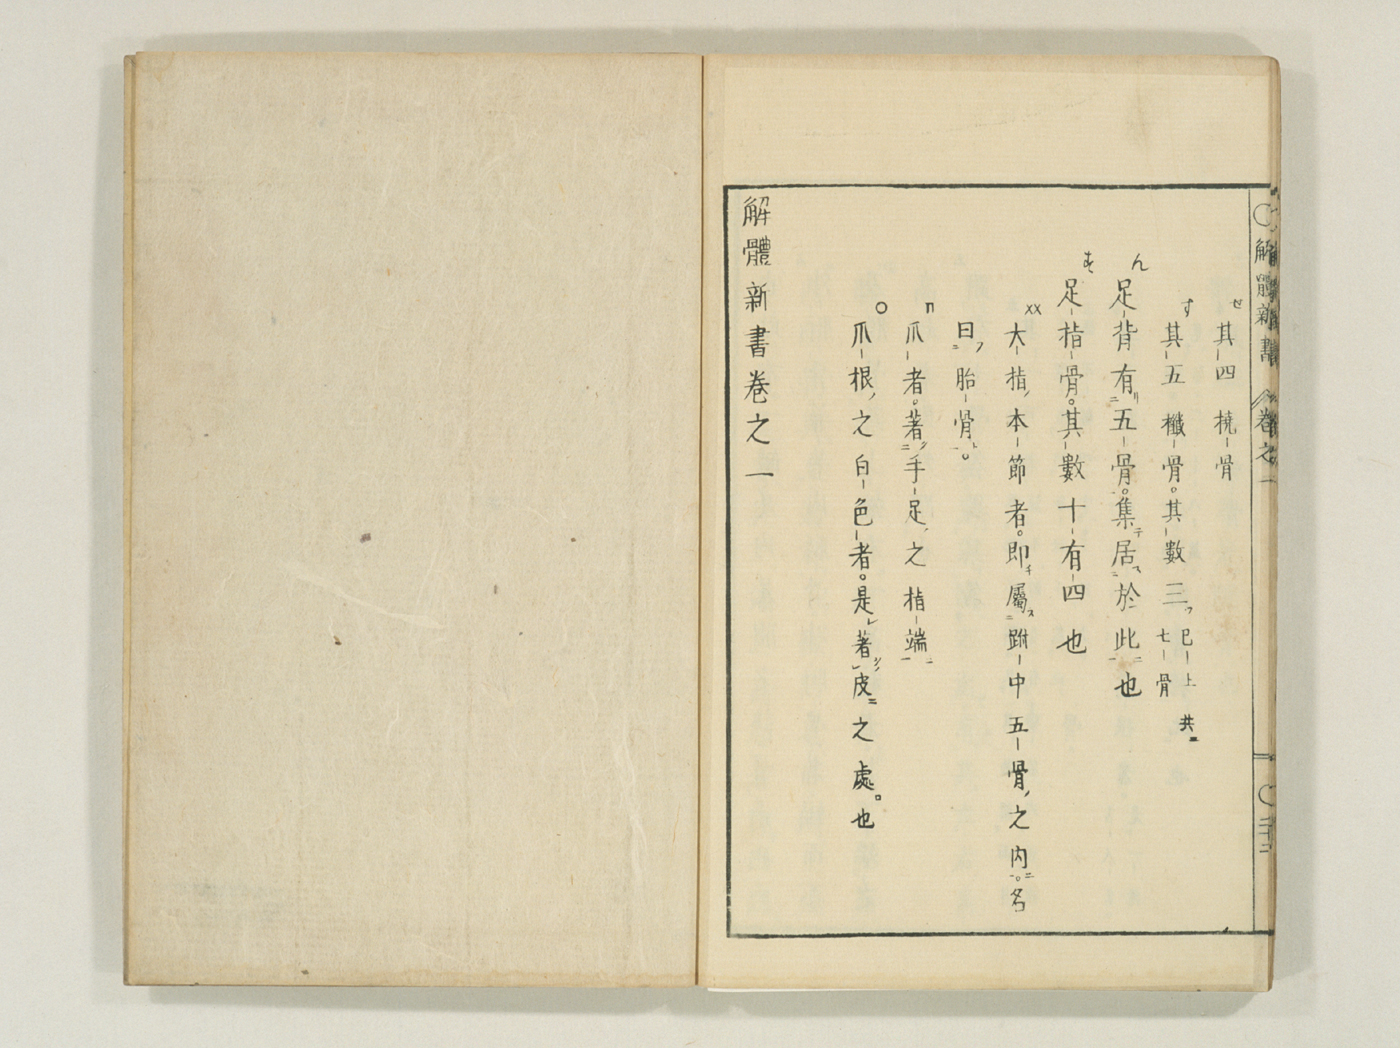 せ 其四橈骨
す 其五櫼骨。其數三 已上共 七骨
ん 足背有五骨。集居於此也
足指骨。其數十有四也
xx 大指本節者。即屬跗中五骨之内。名
曰胎骨。
n 爪者。著手足之指端
○ 爪根之白色者。是著皮之處。也
解體新書卷之一
解體新書 卷之一 二十二